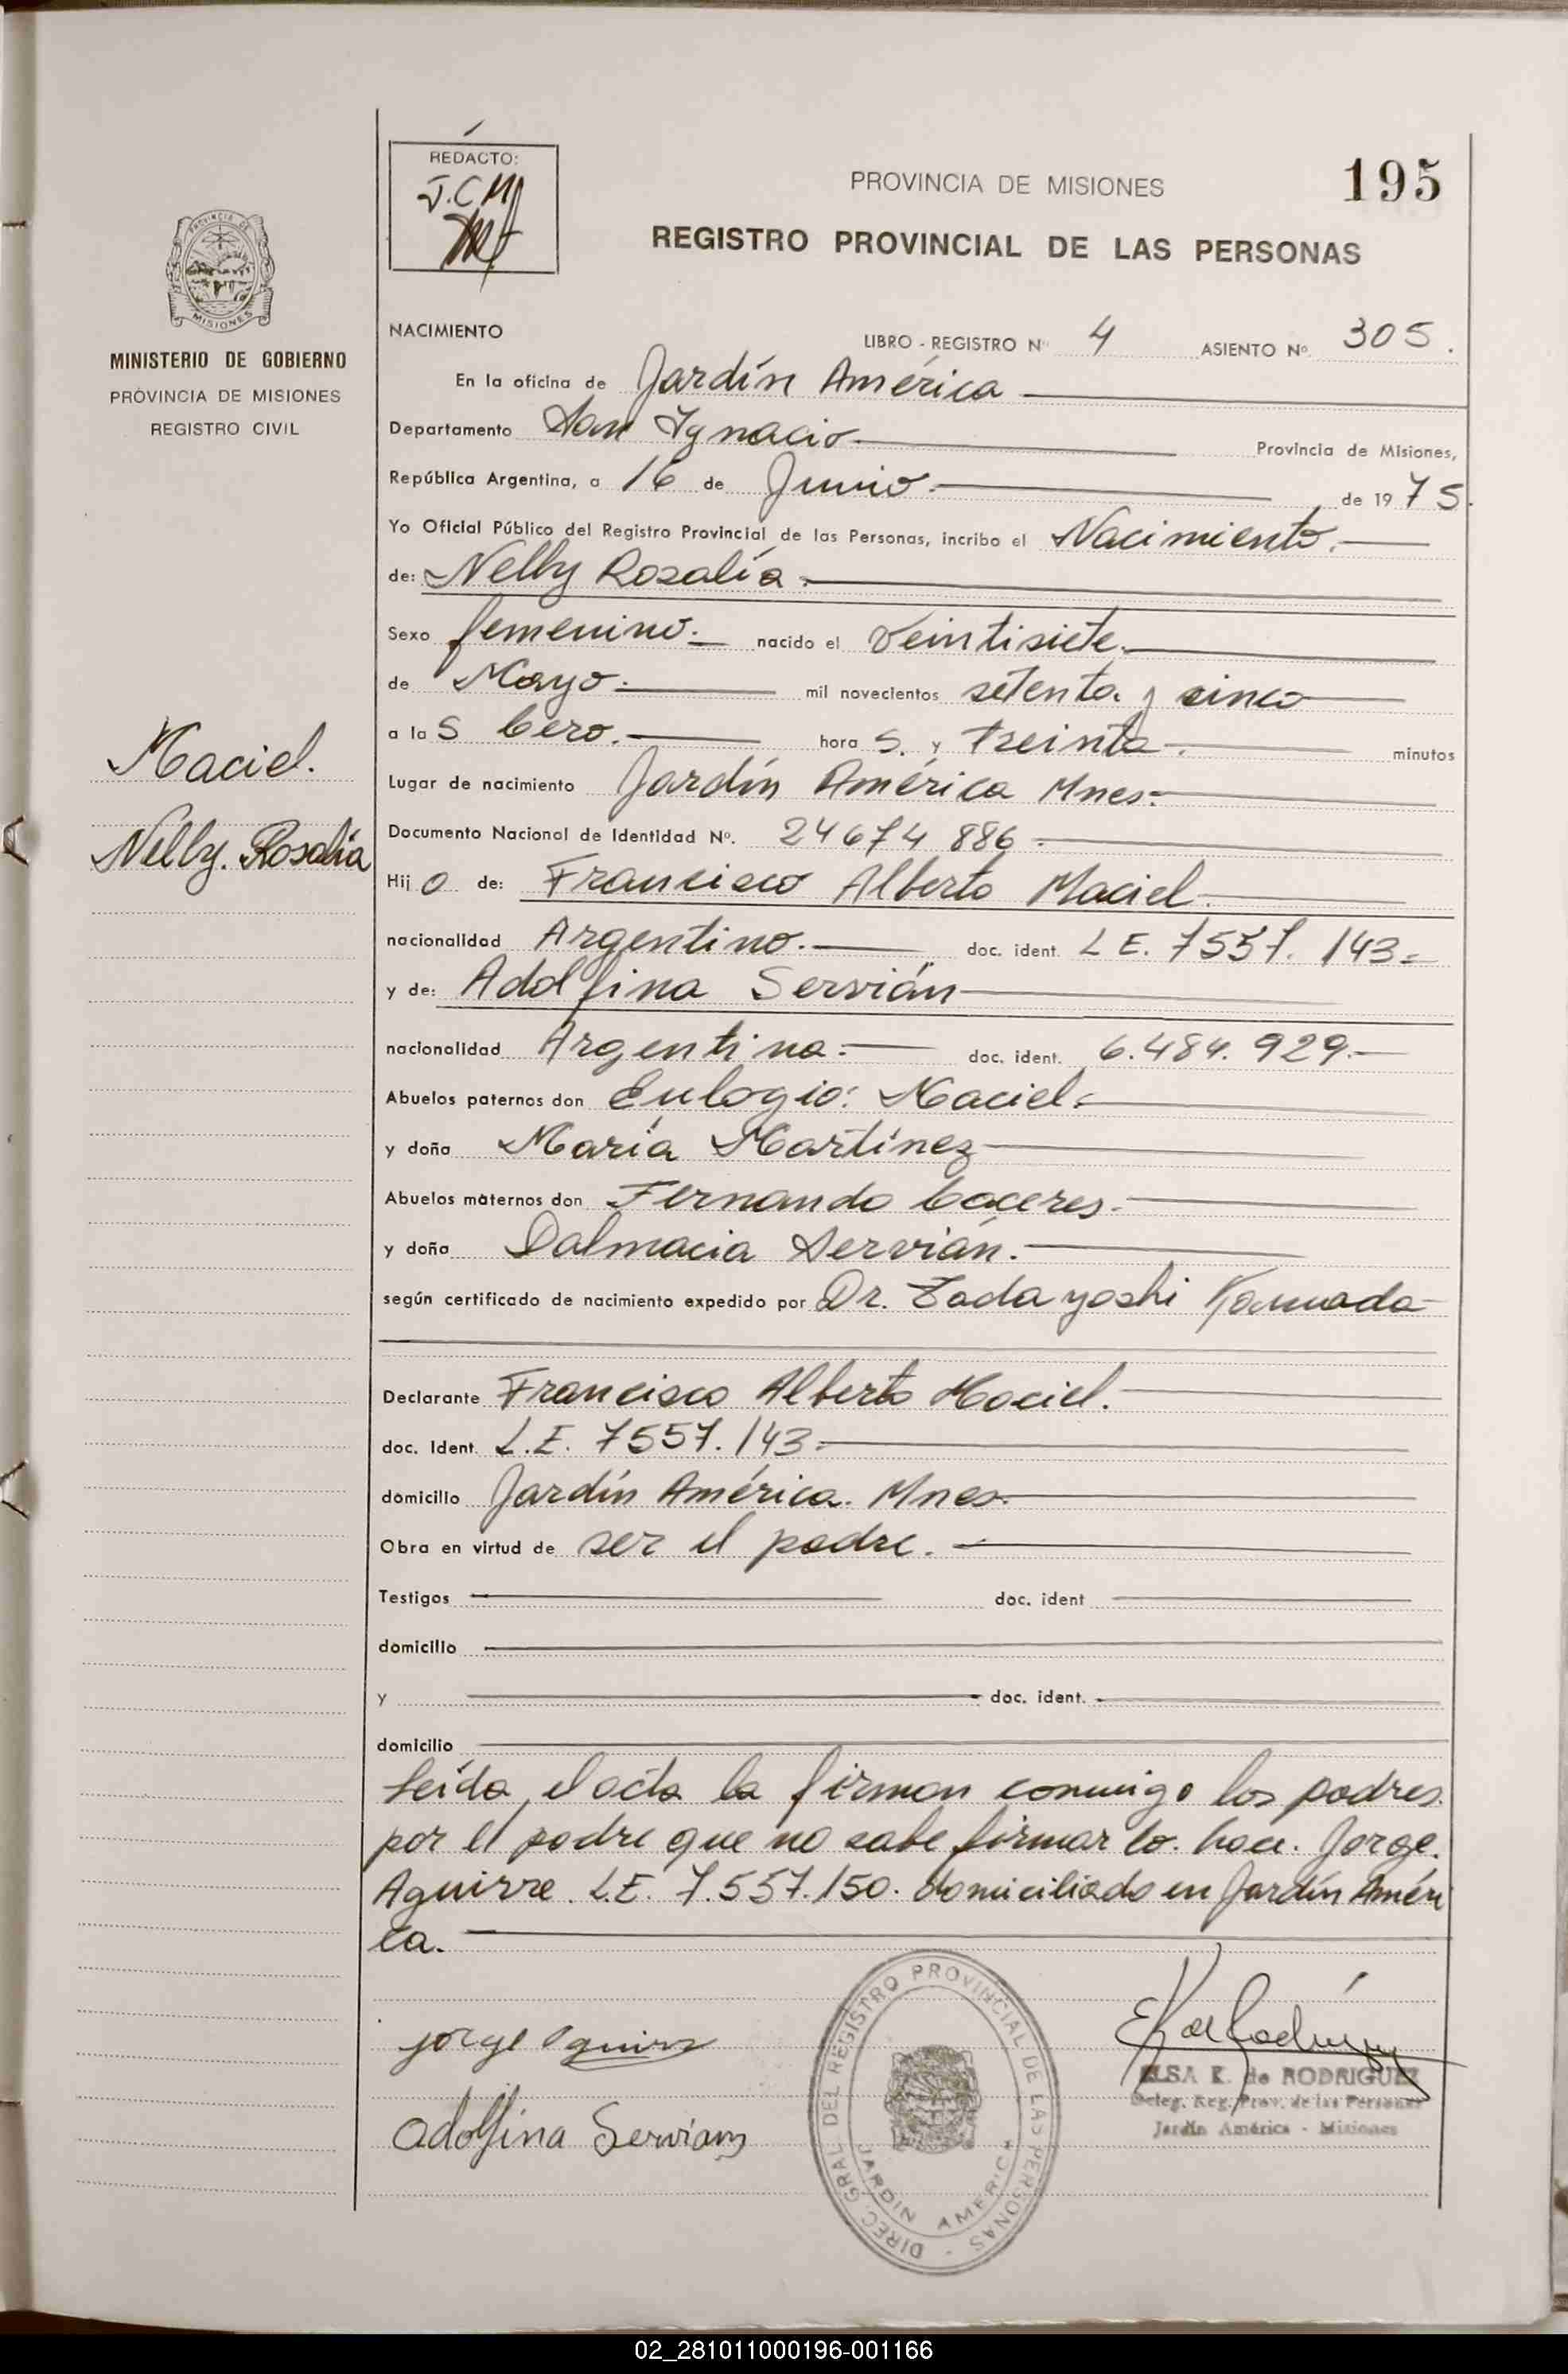 REDACTO:
J.C.M
PROVINCIA DE MISIONES
195
REGISTRO PROVINCIAL DE LAS PERSONAS
PROVINCIA DE MISIONES
MINISTERIO DE GOBIERNO
PROVINCIA DE MISIONES
REGISTRO CIVIL
Maciel.
Nelly. Rosalia
NACIMIENTO LIBRO - REGISTRO Nº 4 ASIENTO Nº 305.
En la oficina de Jardín América
Departamento San Ygnacio Provincia de Misiones,
República Argentina, a 16 de Junio. de 1975.
Yo Oficial Público del Registro Provincial de las Personas, incribo el Nacimiento.
de: Nelly Rosalía.
Sexo femenino. nacido el Veintisiete.
de Mayo. mil novecientos setenta y cinco
a las Cero. horas. y treinta. minutos
Lugar de nacimiento Jardín América Mnes.
Documento Nacional de Identidad Nº. 24674 886
Hijo de: Francisco Alberto Maciel.
nacionalidad Argentino. doc. ident. L E. 7557. 143
y de: Adolfina Servián
nacionalidad Argentina. doc. ident. 6.484. 929.
Abuelos paternos don Eulogio: Maciel
y doña María Martínez
Abuelos maternos don Fernando Caceres.
y doña Dalmacia Servián.
según certificado de nacimiento expedido por Dr. Tadayoshi Kamada
Declarante Francisco Alberto Maciel.
doc. Ident. L.E. 7557. 143
domicilio Jardín América. Mnes.
Obra en virtud de ser el padre.
Testigos doc. ident
domicilio
y doc. ident.
domicilio
Leída, el acta la firman conmigo los padres.
por el padre que no sabe firmar lo. hace. Jorge.
Aguirre. L.E. 7.557.150. domiciliado en Jardín Améri
ca.
Jorge Aguirre
Adolfina Servian
DIREC. GRAL. DEL REGISTRO PROVINCIAL DE LAS PERSONAS -
JARDIN AMERICA
ELSA K. de RODRIGUEZ
Deleg. Reg. Prov. de las Personas
Jardín América - Misiones
02_281011000196-001166